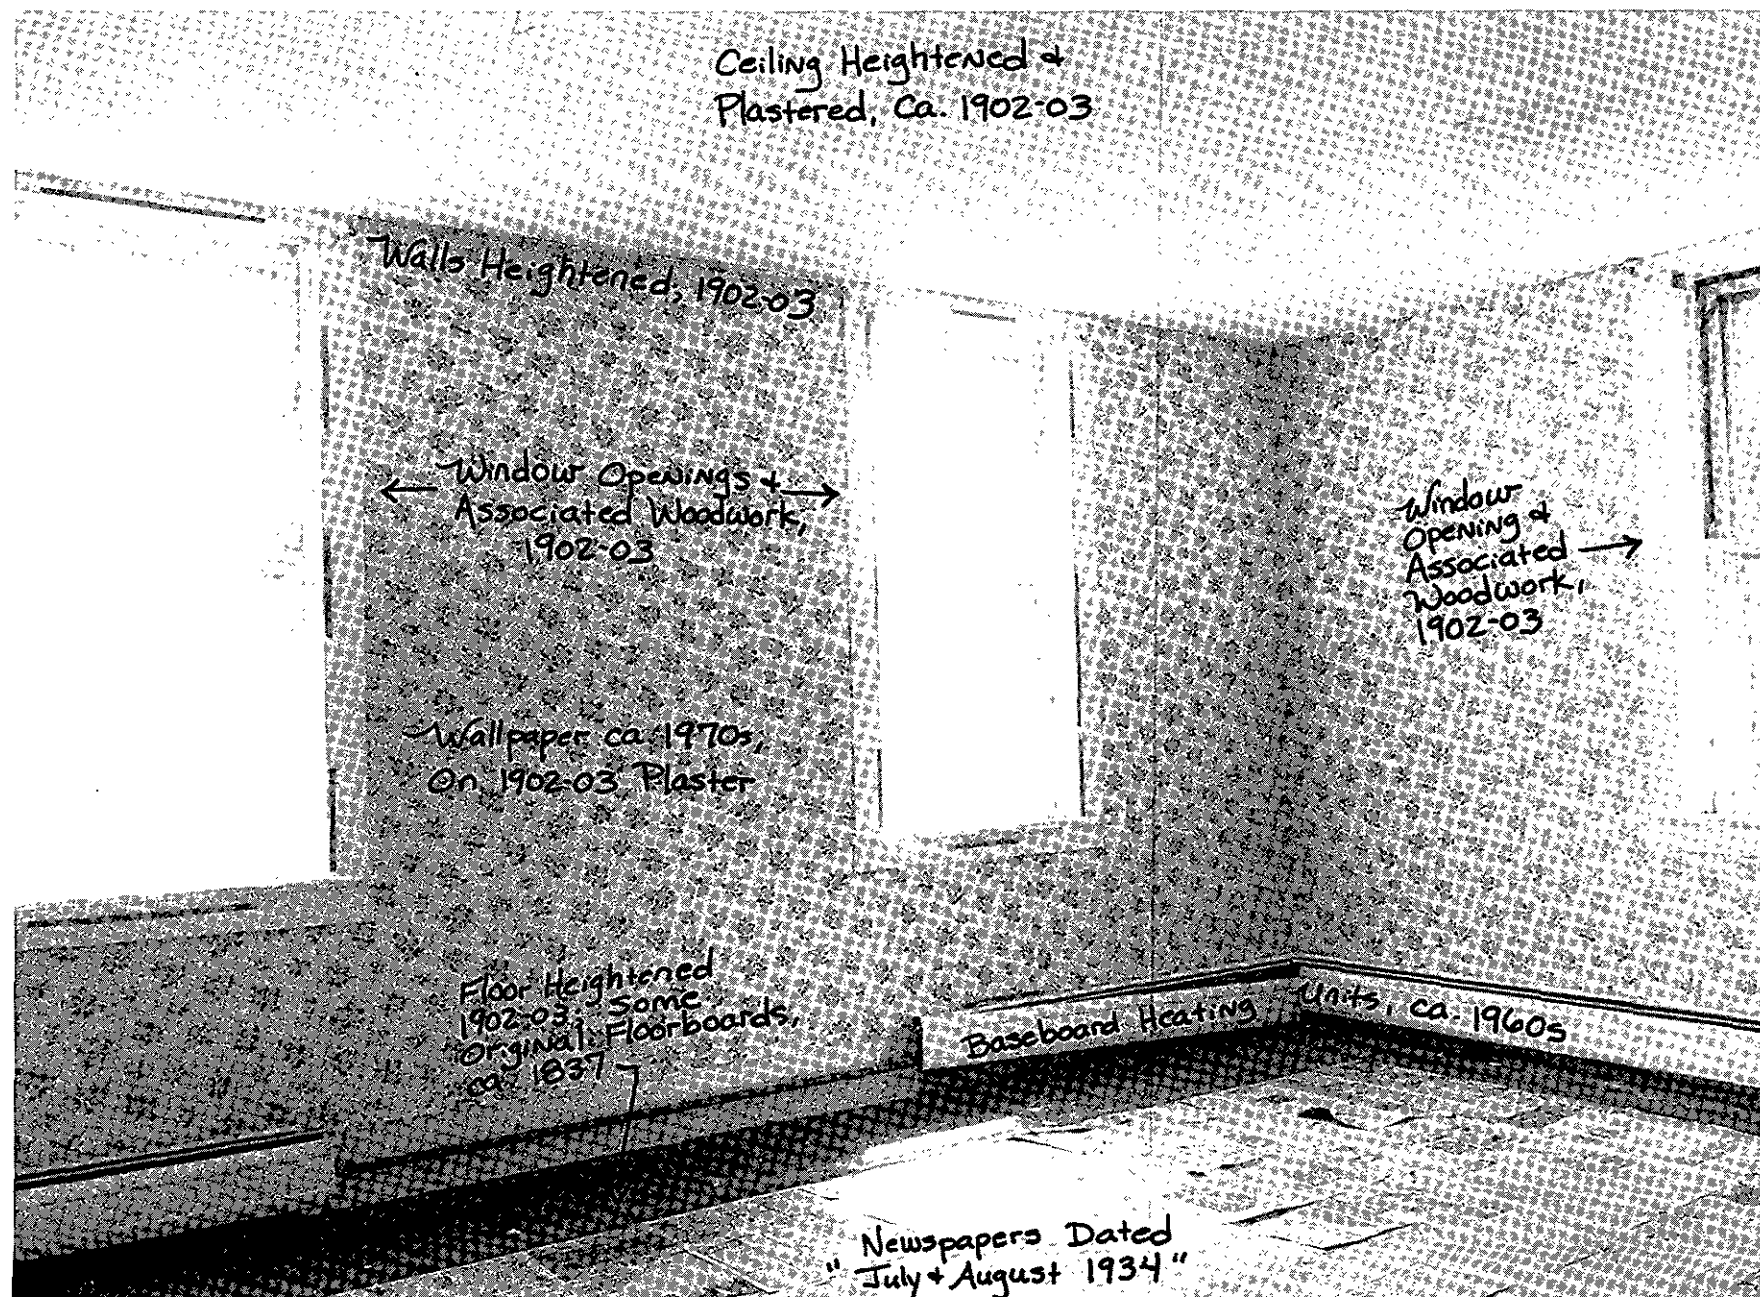 Ceiling Heightened &
Plastered, Ca. 1902-03
Walls Heightened, 1902-03
Window Openings &
Associated Woodwork,
1902-03
Window
Opening &
Associated
Woodwork,
1902-03
Wallpaper ca. 1970s,
On 1902-03 Plaster
Floor Heightened
1902-03; Some
Original Floorboards,
ca. 1837
Baseboard Heating Units, ca. 1960s
Newspapers Dated
"July & August 1934"